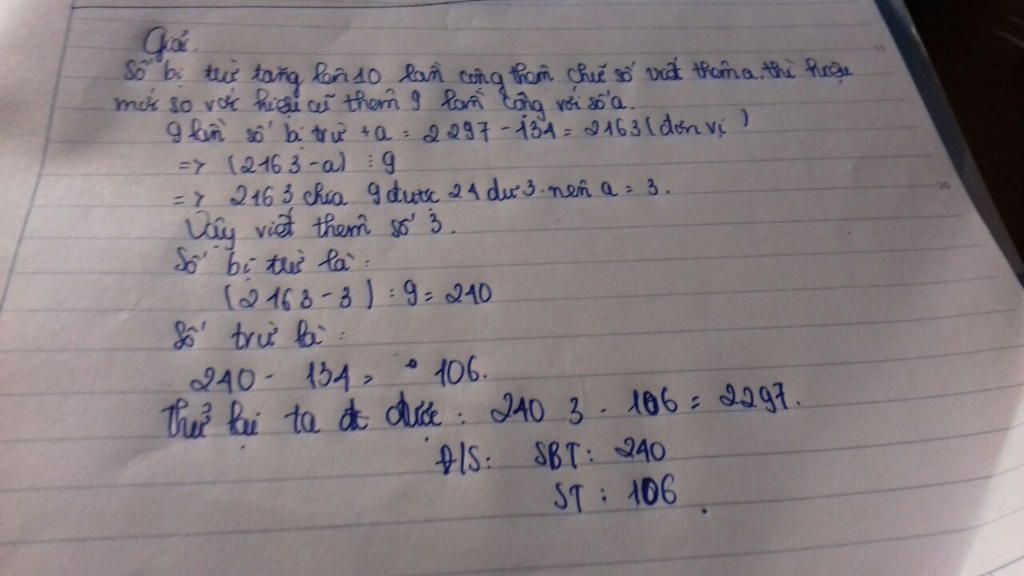 Giải.
Số bị trừ tăng lên 10 lần cộng thêm chữ số viết thêm a. thì hiệu
mới so với hiệu cũ thêm 9 lần cộng với số a.
9 lần số bị trừ + a = 2297 - 134 = 2163 (đơn vị)
=> (2163 - a) : 9
=> 2163 chia 9 được 24 dư 3. nên a = 3.
Vậy viết thêm số 3.
Số bị trừ là :
(2163 - 3) : 9 = 240
Số trừ là :
240 - 134 = 106.
Thử lại ta được : 240 3 - 106 = 2297.
Đ/S: SBT: 240
ST : 106 .